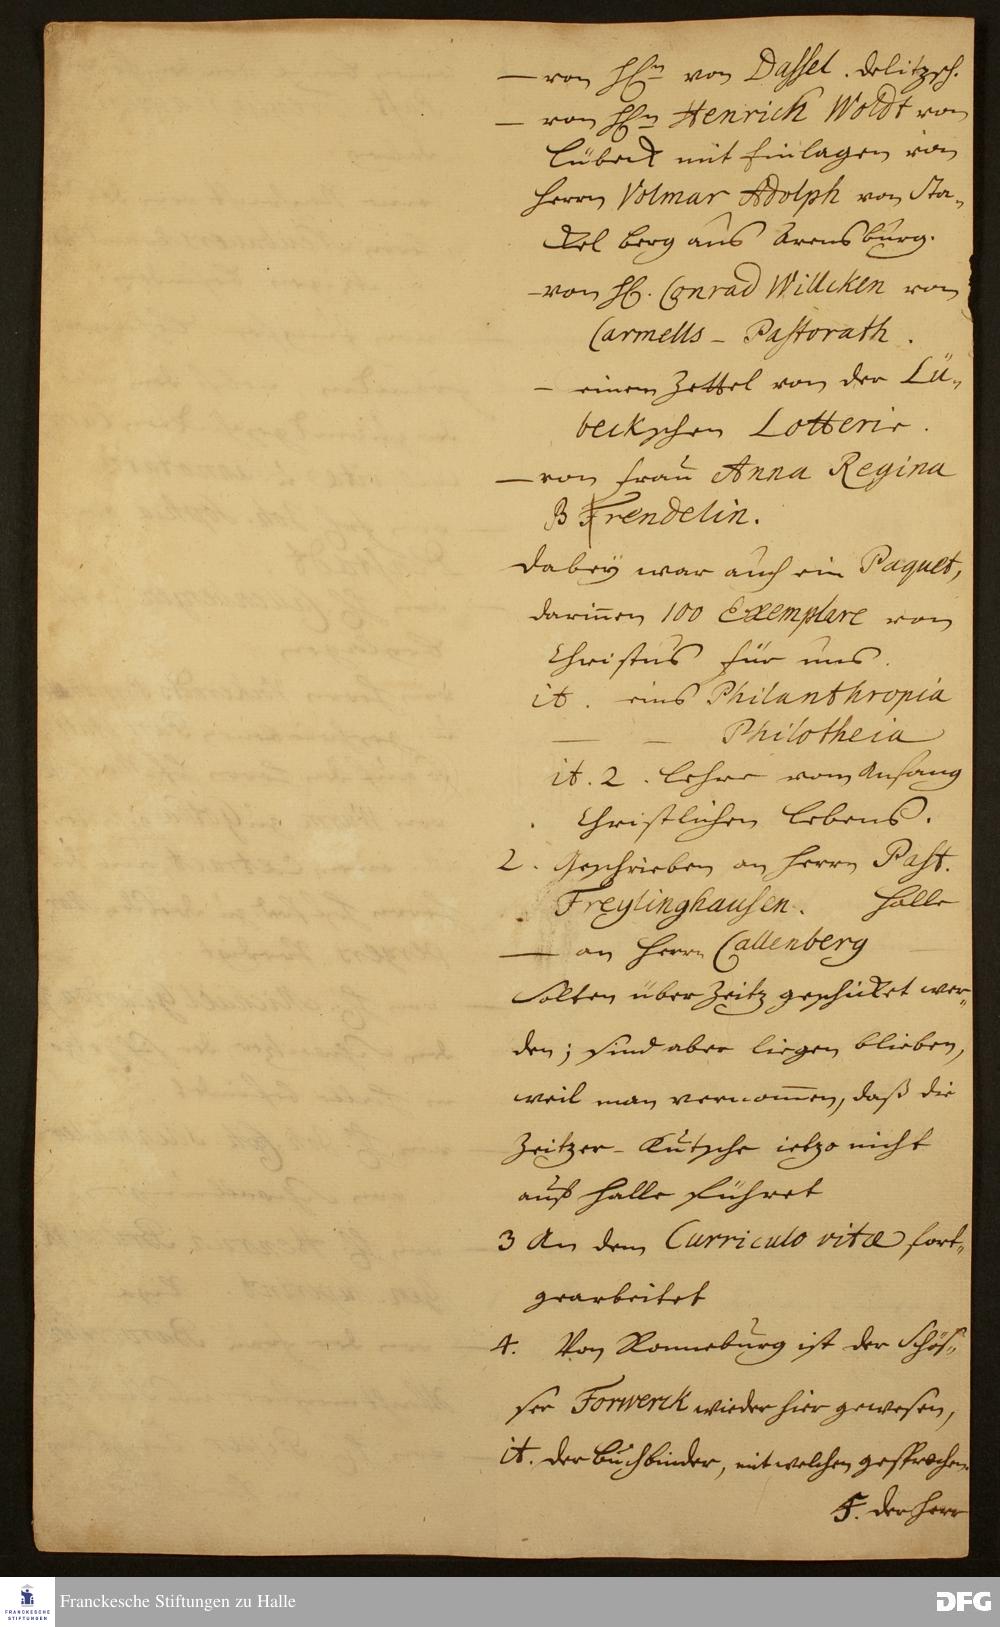 — von HEn von Dassel. Delitzsch.
— von HEn Henrich Woldt von
Lübeck mit Einlagen von
Herrn Volmar Adolph von Sta-
kel berg aus Arensburg.
– von HE. Conrad Willcken von
Carmells – Pastorath.
– einem Zettel von der Lü-
beckschen Lotterie.
— von Frau Anna Regina
Frendelin.
Dabey war auch ein Paquet,
darinnen 100 Exemplare von
Christus für uns.
it. eins Philanthropia
— — Philotheia
it. 2. Lehre vom Anfang
Christlichen Lebens.
2. Geschrieben an Herrn Past.
Freylinghausen. Halle
— an Herrn Callenberg
Solten über Zeitz geschicket wer-
den; sind aber liegen blieben,
weil man vernommen, daß die
Zeitzer-Kutsche ietzo nicht
auf Halle führet
3 An dem Curriculo vitæ fort-
gearbeitet
4. Von Ronneburg ist der Schös-
ser Forwerck wieder hier gewesen,
it. der Buchbinder, mit welchen gesprochen.
5. der Herr
Franckesche Stiftungen zu Halle
FRANCKESCHE
STIFTUNGEN
DFG